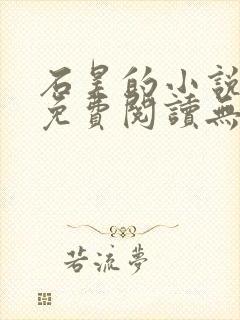 石昊的小說
免費閱讀無
若流夢